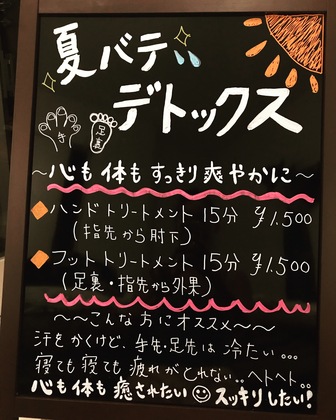 夏バテ
デトックス
手
足裏
～心も体もすっきり爽やかに～
ハンドトリートメント 15分 ¥1.500
(指先から肘下)
フットトリートメント 15分 ¥1.500
(足裏・指先から外果)
～～こんな方にオススメ～～
汗をかくけど、手先・足先は冷たい…
寝ても寝ても疲れがとれない‥ヘトヘト‥
心も体も癒されたい☺スッキリしたい!